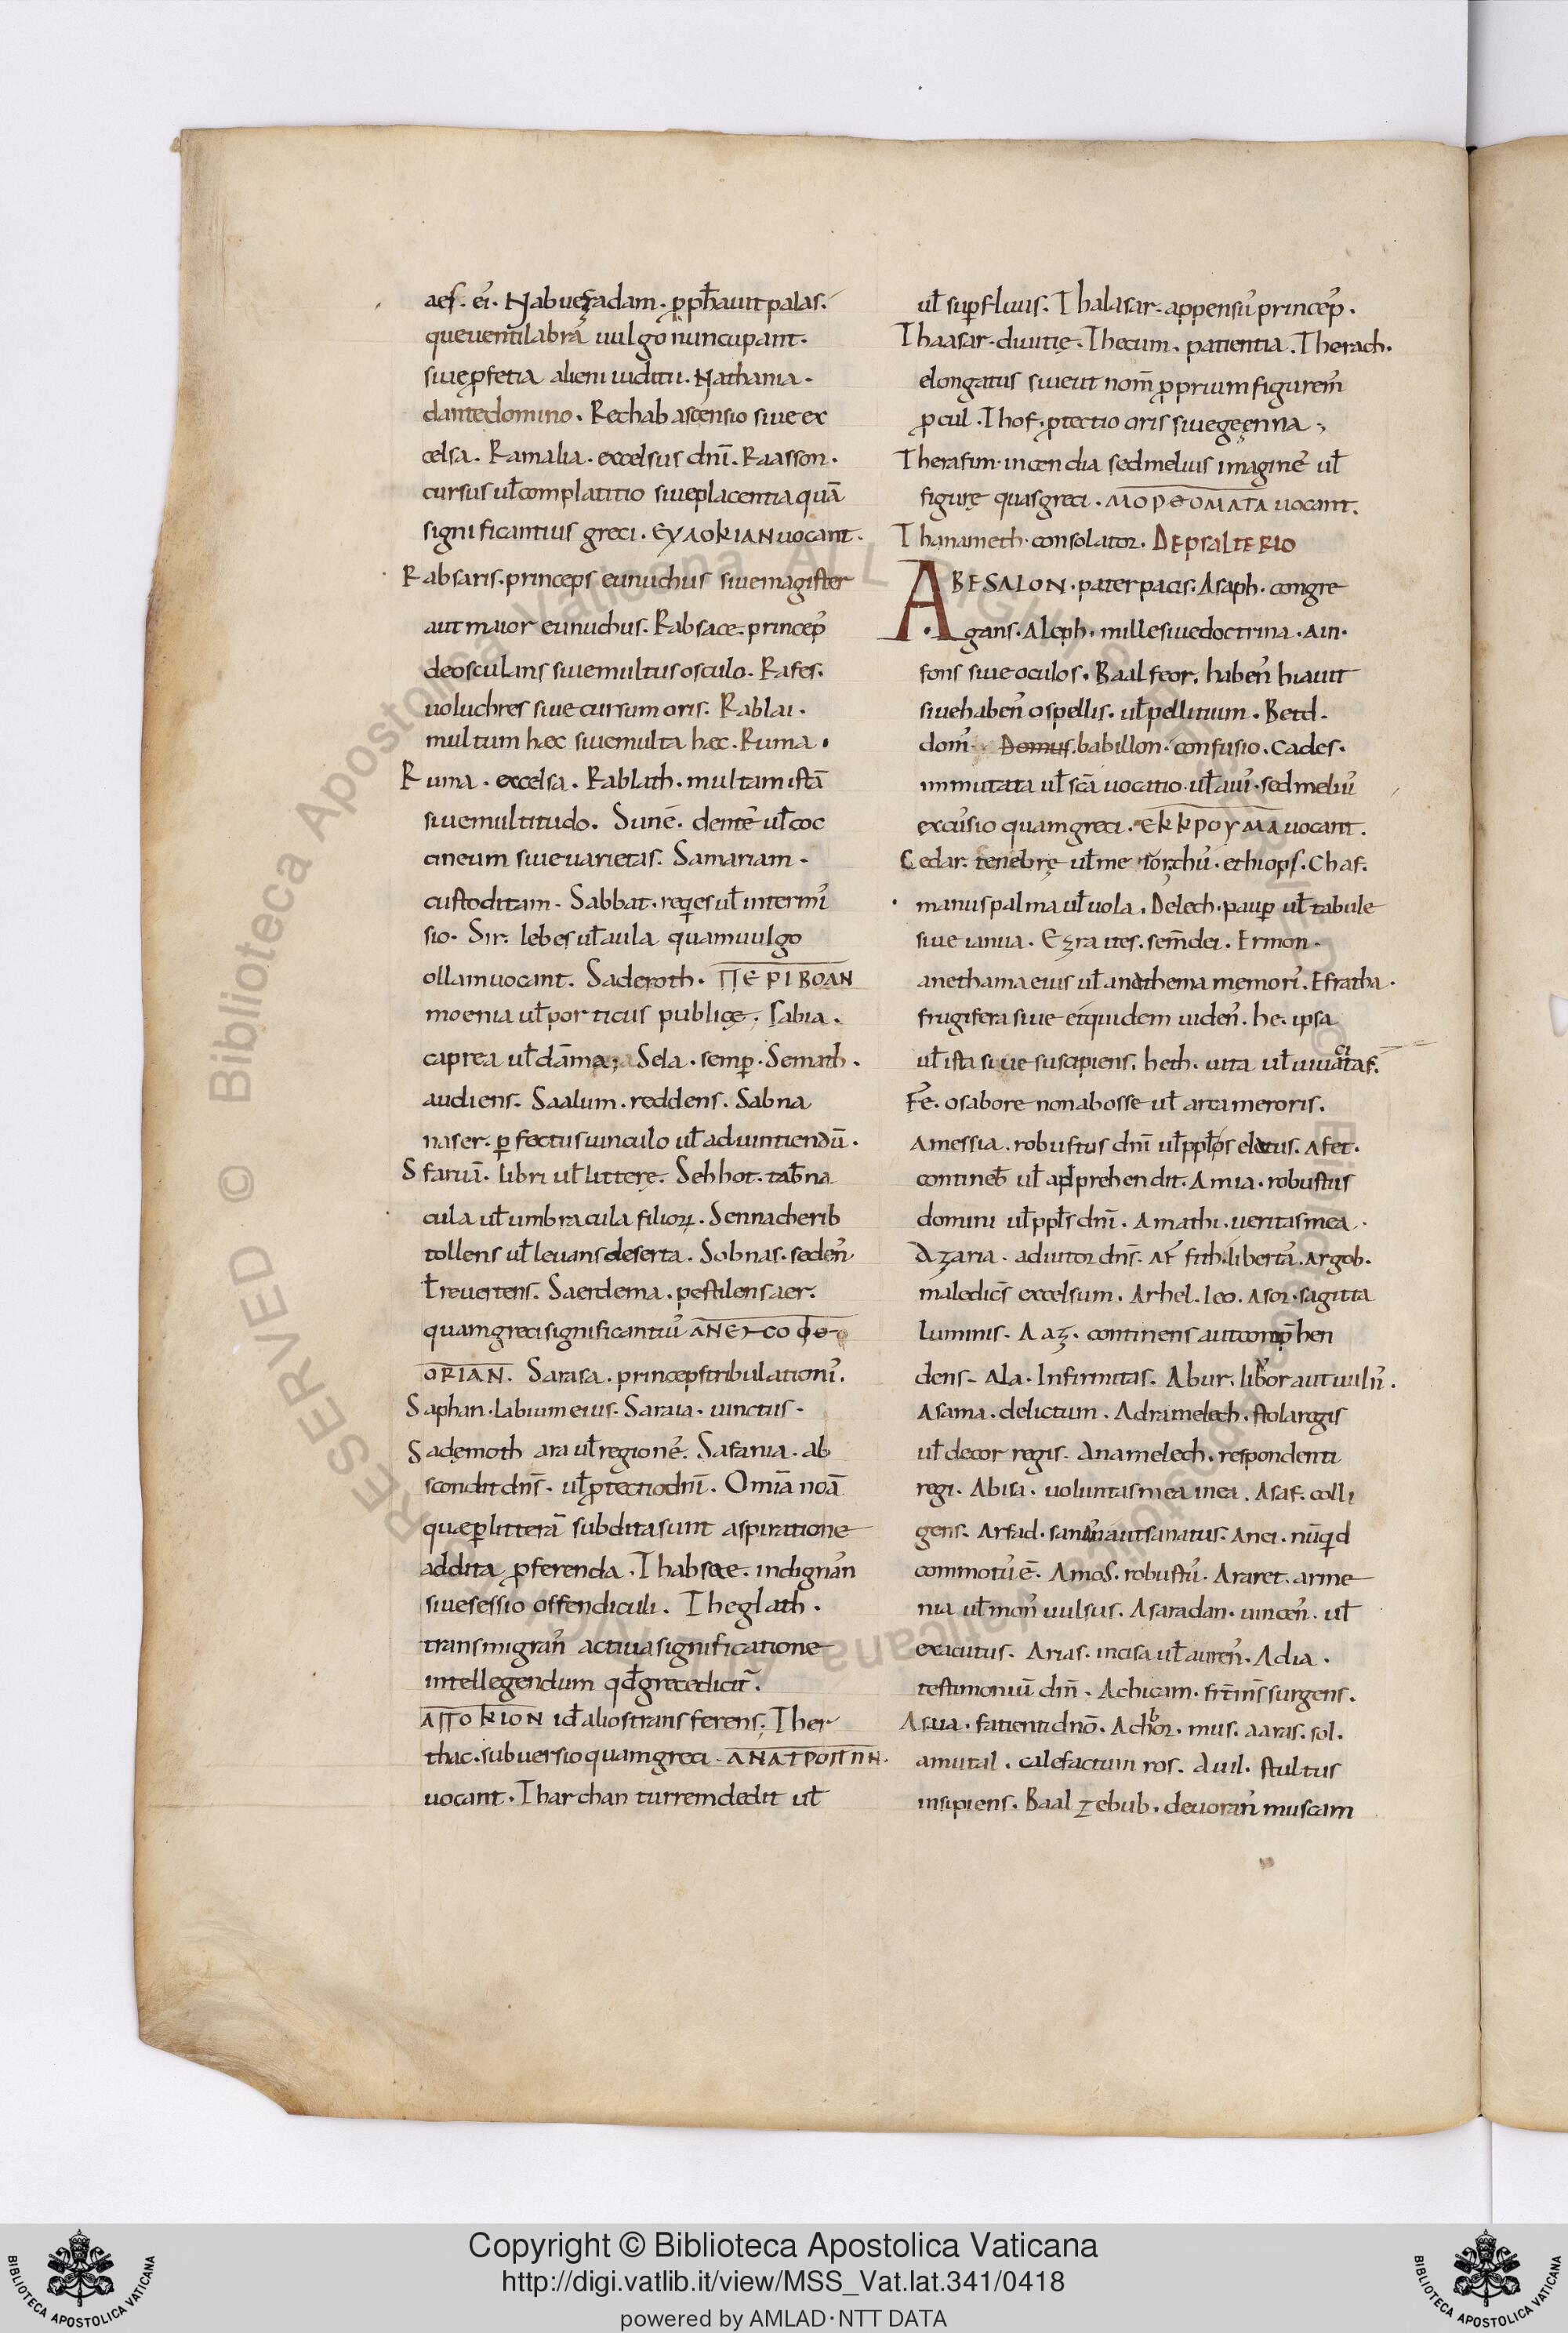 aes. ei᾽. Nabuezadam. ꝓph̄auit palas.
que uentilabra᾽ uulgo nuncupant.
siue ꝓfetia alieni iuditii. Nathania.
dante domino. Rechab ascensio siue ex
celsa. Ramalia. excelsus dnī. Raasson.
cursus ul̄ complatitio siue placentia quā
significantius greci. ЄΥΛΟΚΙΑΝ uocant.
Rabsaris. princeps eunuchus siue magister
aut maior eunuchus. Rabsace. princep᾽
deosculans siue multus osculo. Rafes.
uoluchres siue cursum oris. Rablai.
multum hæc siue multa hæc. Ruma.
Ruma. excelsa. Rablath. multam istā
siue multitudo. Sunē. dente᾽ ul̄ coc
cineum siue uarietas. Samariam.
custoditam. Sabbat. reqies ul̄ intermi᾽
sio. Sir. lebes ul̄ aula quam uulgo
ollam uocant. Saderoth. ΠЄΡΙΒΟΑΝ
moenia ul̄ porticus publicę. Sabia.
caprea ul̄ dāma; Sela. semꝑ. Semath.
audiens. Saalum. reddens. Sabna
naser. ꝑfectus uinculo ul̄ ad uintiendū.
Sfaruā. libri ul̄ litterę. Sehhot. tab̄na
cula ul̄ umbracula filioꝝ. Sennacherib
tollens ul̄ leuans deserta. Sobnas. seden᾽
l̄ reuertens. Saerdema. pestilens aer.
quam greci significantiu᾽ ΑΝЄΥCO ΦΘ
ORIAN. Sarasa. princeps tribulationi᾽.
Saphan. Labium eius. Saraia. uinctus.
Sademoth ara ul̄ regione᾽. Safania. ab
scondit dns̄. ul̄ ꝓtectio dnī. Omīa noā
quæ ꝑ litterā subdita sunt aspiratione
addita ꝓferenda. Thabsce. indignan᾽
siue sessio offendiculi. Theglath.
transmigran᾽ actiua significatione
intellegendum qd̄ grece dicit᾽.
ΑΠΟΚΙΟΝ id̄ alios transferens. Ther
thac. subuersio quam greci. ΑΝΑΤΡΟΠΠΝ.
uocant. Tharchan turrem dedit ul̄
ul̄ suꝑfluus. Thalasar. appensu᾽ princep᾽.
Thaasar. diuitię. Thecum. patientia. Therach.
elongatus siue ut nom̄ ꝓprium figurem᾽
ꝓcul. Thof. ꝓtectio oris siue geenna.
Therafim. incendia sed melius imagine᾽ ul̄
figurę quas greci. ΜΟΡΘΟΜΑΤΑ uocant.
Thanameth. consolator. DE PSALTERIO
ABESALON. pater pacis. Asaph. congre
gans. Aleph. mille siue doctrina. Ain.
fons siue oculos. Baal feor. haben᾽ hiauit
siue haben᾽ os pellis. ul̄ pellitium. Betd.
dom᾽. Domus. babillon. confusio. Cades.
immutata ul̄ scā uocatio. ul̄ aui᾽. sed meliu᾽
excu᾽sio quam greci. ЄΚΚΡΟΥΜΑ uocant.
Cedar. tenebrę ul̄ me ror. chu᾽. ethiops. Chaf.
manus palma ul̄ uola. Delech. pauꝑ ul̄ tabule
siue ianua. Ezra ites. sem̄ dei. Ermon.
anethama eius ul̄ anathema memori᾽. Efratha.
frugifera siue eiquidem uiden᾽. he. ipsa
ul̄ ista siue suscipiens. heth. uita ul̄ uiuacitas.
Fe᾽. os abore non ab osse ul̄ arta meroris.
Amessia. robustus dnī ul̄ ppl̄os elatus. Afet.
contineb̄ ul̄ apprehendit. Amia. robustus
domini ul̄ ppl̄s dnī. Amathi. ueritas mea.
Azaria. adiutor dns̄. Af fith. liberta᾽. Argob.
maledics̄ excelsum. Arhel. leo. Asor. sagitta
luminis. Aaz. continens aut comp̄hen
dens. Ala. Infirmitas. Abur. libor aut uuln᾽.
Asama. delictum. Adramelech. stola regis
ul̄ decor regis. Anamelech. respondenti
regi. Abisa. uoluntas mea inea. Asaf. colli
gens. Arfad. aut sanatus. Anei. nūqd
commotu᾽ē. Amos. robustu᾽. Araret. arme
nia ul̄ mon᾽ uulsus. Asaradan. uincen᾽. ul̄
exacutus. Arias. incisa ul̄ auren᾽. Adia.
testimoniū dnī. Achicam. fr̄ ms̄ surgens.
Asua. fatienti dnō. Achbor. mus. aaras. sol.
amutal. calefactum ros. Auil. stultus
insipiens. Baal zebub. deuoran᾽ muscam
Copyright © Biblioteca Apostolica Vaticana
http://digi.vatlib.it/view/MSS_Vat.lat.341/0418
powered by AMLAD·NTT DATA
BIBLIOTECA APOSTOLICA VATICANA
BIBLIOTECA APOSTOLICA VATICANA